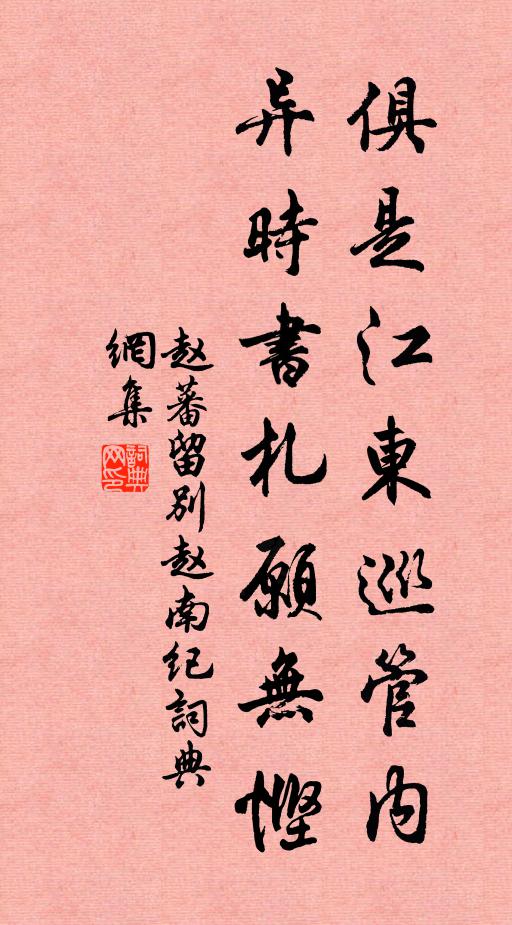 俱是江東巡管内
异時書札願無慳
赵蕃留别赵南纪詞典
網集
詞典
网印